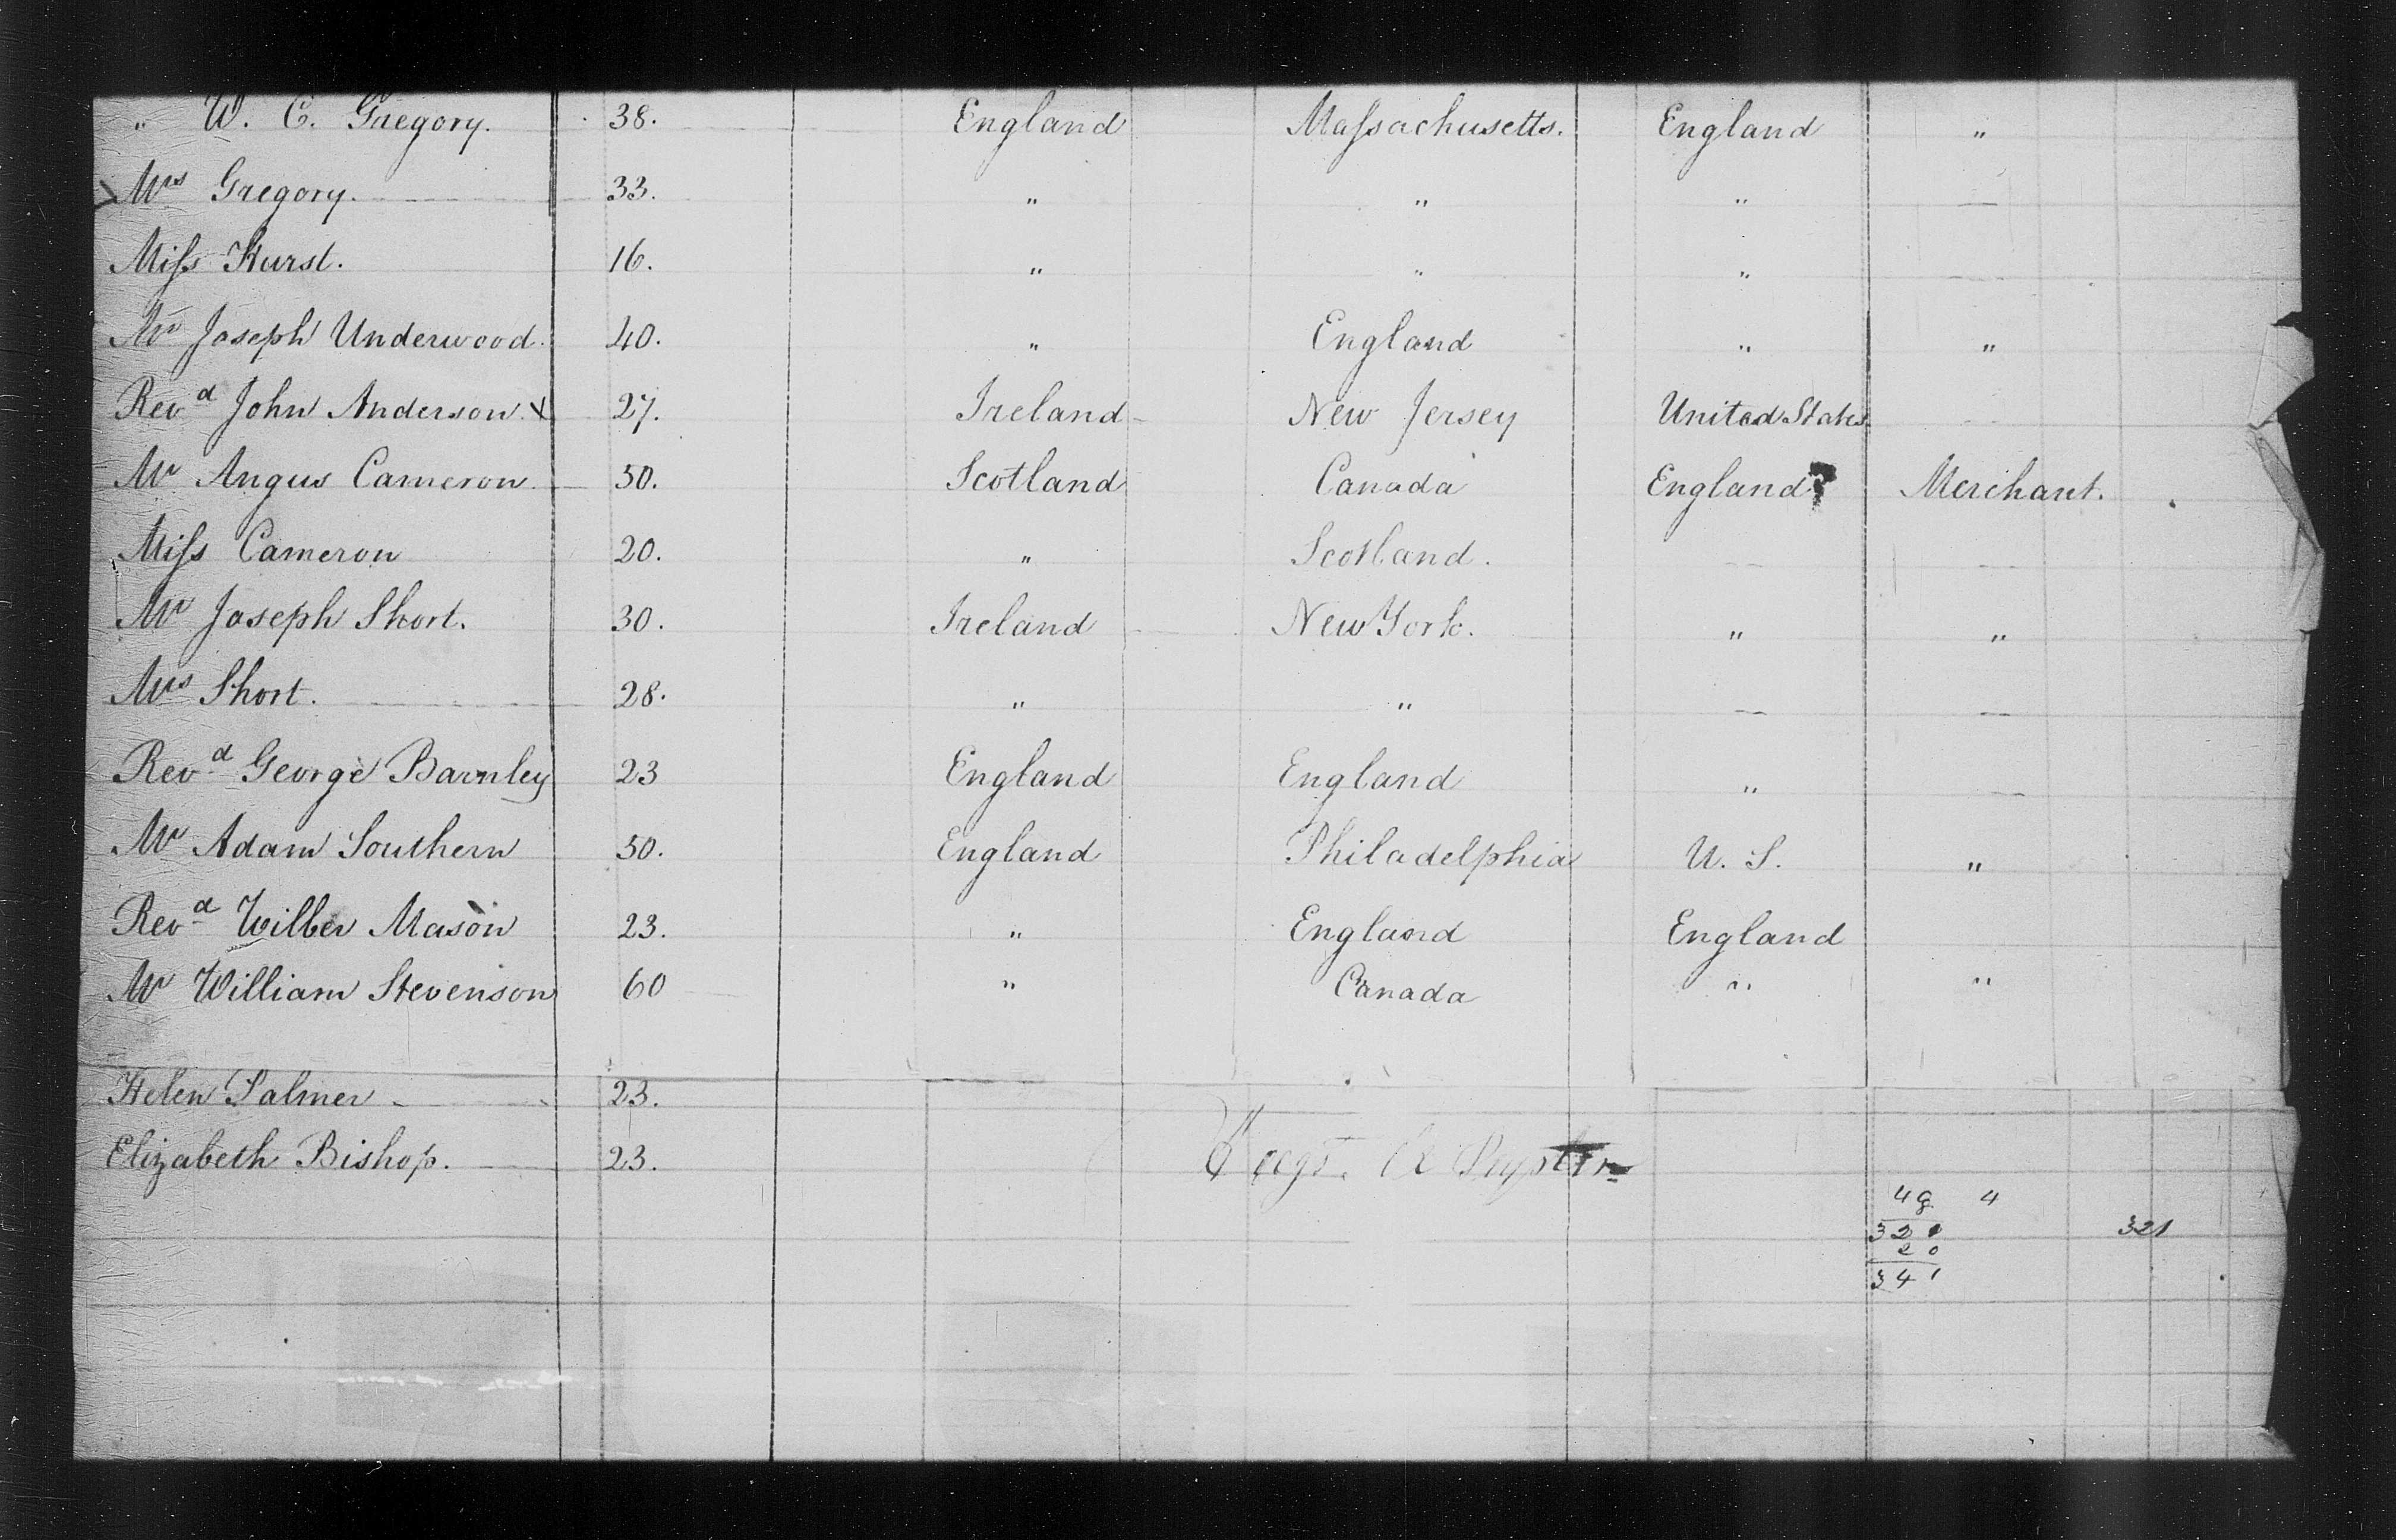 " W. C. Gregory. 38. England Massachusetts. England "
Mrs Gregory. 33. " " " —
Miss Hurst. 16. " " "
Mr Joseph Underwood. 40. " England " "
Revd John Anderson X 27. Ireland New Jersey United States.
Mr Angus Cameron 50. Scotland Canada England Merchant.
Miss Cameron 20. " Scotland. — —
Mr Joseph Short. 30. Ireland New York. " "
Mrs Short. 28. " " — —
Revd George Barnley 23 England England " —
Mr Adam Southern 50. England Philadelphia U. S. "
Revd Wilber Mason 23. " England England
Mr William Stevenson 60 " Canada " "
Helen Palmer 23.
Elizabeth Bishop. 23.
4 4
321 321
20
341